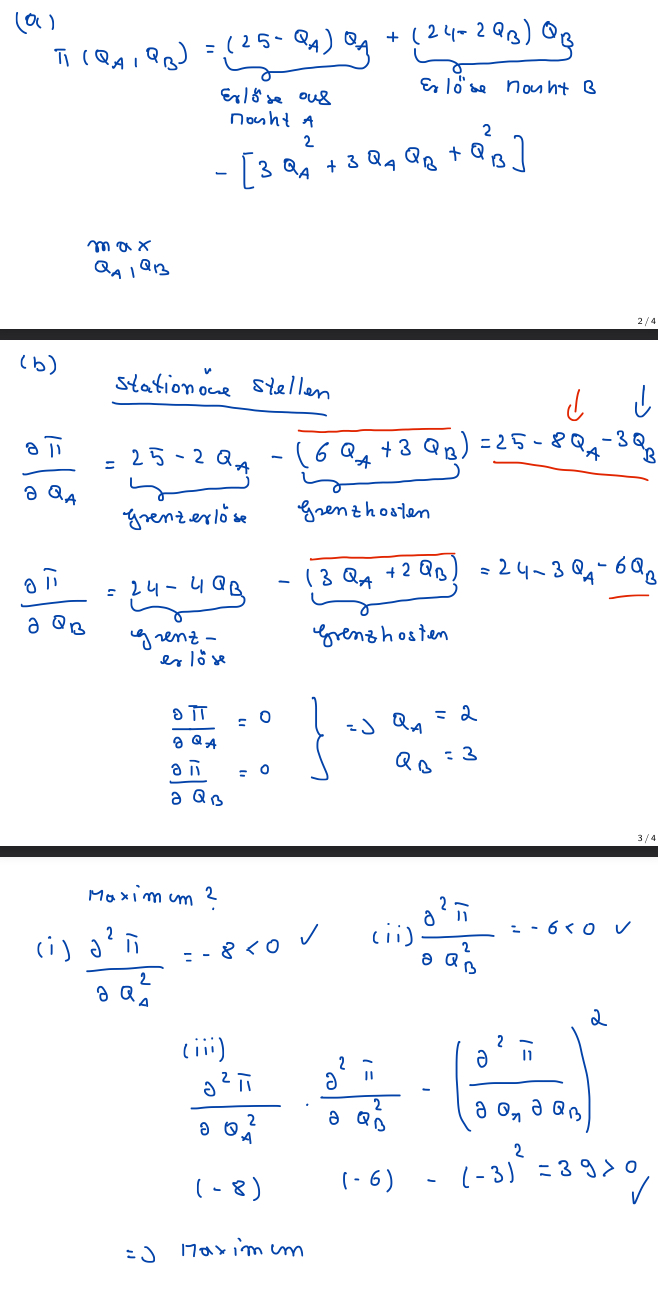 (a)
π(Q_A, Q_B) = (25 - Q_A) Q_A + (24 - 2Q_B) Q_B
Erlöse aus Markt A
Erlöse Markt B
- [3 Q_A^2 + 3 Q_A Q_B + Q_B^2]
max
Q_A, Q_B
2 / 4
(b)
Stationäre Stellen
∂π/∂Q_A = 25 - 2 Q_A - (6 Q_A + 3 Q_B) = 25 - 8Q_A - 3Q_B
Grenzerlöse
Grenzkosten
∂π/∂Q_B = 24 - 4 Q_B - (3 Q_A + 2 Q_B) = 24 - 3 Q_A - 6Q_B
Grenz-
erlöse
Grenzkosten
∂π/∂Q_A = 0
∂π/∂Q_B = 0
} => Q_A = 2
Q_B = 3
3 / 4
Maximum?
(i) ∂^2π/∂Q_A^2 = -8 < 0 ✓
(ii) ∂^2π/∂Q_B^2 = -6 < 0 ✓
(iii)
∂^2π/∂Q_A^2 · ∂^2π/∂Q_B^2 - (∂^2π/∂Q_A ∂Q_B)^2
(-8) (-6) - (-3)^2 = 39 > 0 ✓
=> Maximum